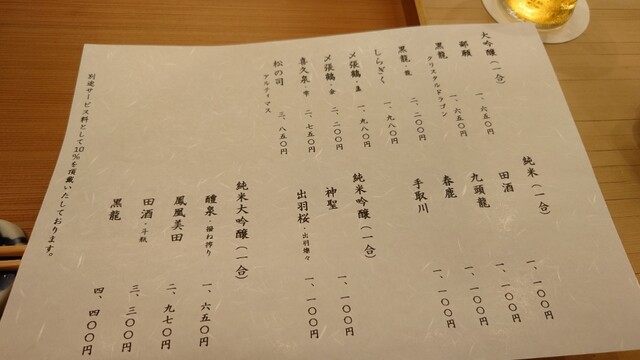 大吟醸(一合)
郷願 一、六五〇円
黒龍 クリスタルドラゴン 一、六五〇円
黒龍・龍 二、二〇〇円
しらぎく 一、九八〇円
〆張鶴・金 二、二〇〇円
喜久泉・吟 二、七五〇円
松の司 アルティマス 三、八五〇円
純米(一合)
田酒 一、一〇〇円
九頭龍 一、一〇〇円
春鹿 一、一〇〇円
手取川 一、一〇〇円
純米吟醸(一合)
神聖 一、一〇〇円
出羽桜・出羽燦々 一、一〇〇円
純米大吟醸(一合)
醴泉・撥ね搾り 一、六五〇円
鳳凰美田 二、九七〇円
田酒・斗瓶 三、三〇〇円
黒龍 四、四〇〇円
別途サービス料として10%を頂戴いたしております。